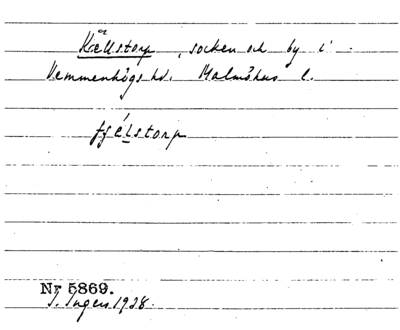 Källstorp, socken och by i
Vemmenhögs hd. Malmöhus l.
tjélstorp
Nr 5869.
I. Ingers 1928.